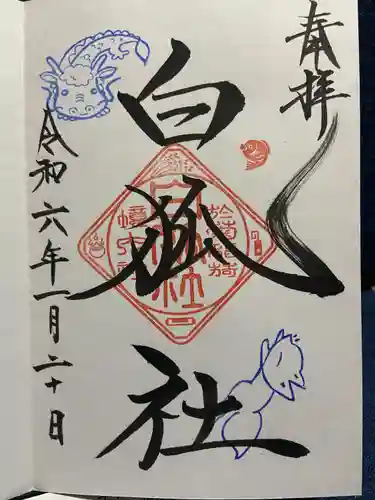 奉拝
白狐社
令和六年一月二十日